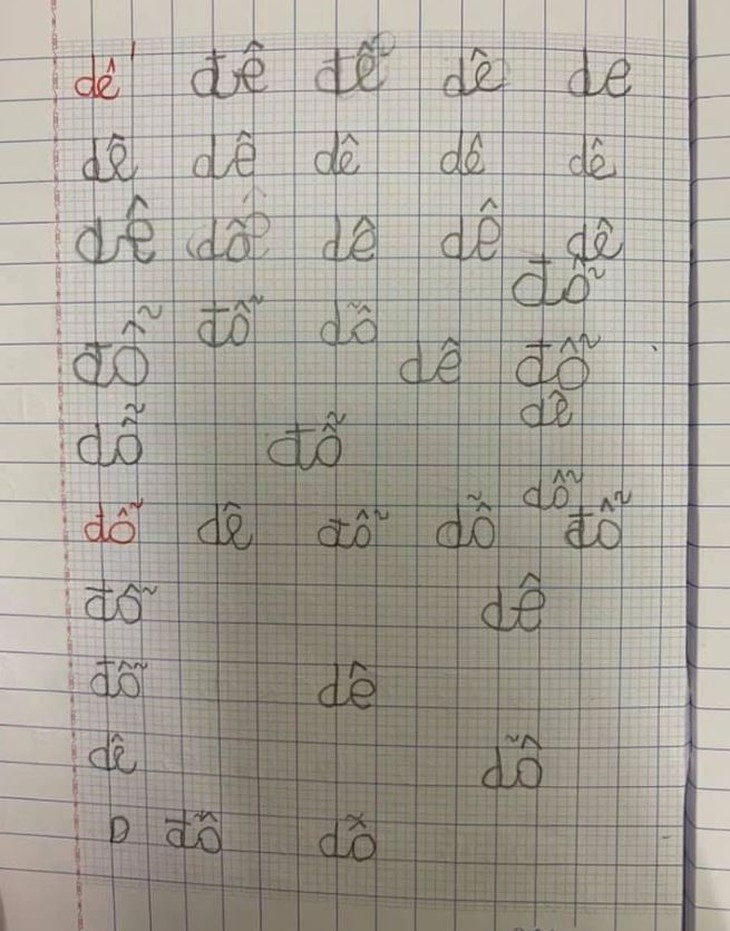 dê đê đê dê de
dê dê dê dê dê
dê dô dê dê dê
đỗ
đỗ đỗ dỗ
dê đỗ
dê
dỗ đỗ
dỗ
dỗ dê đỗ dỗ đỗ
đỗ dê
đỗ dê
dê dỗ
D đỗ dỗ